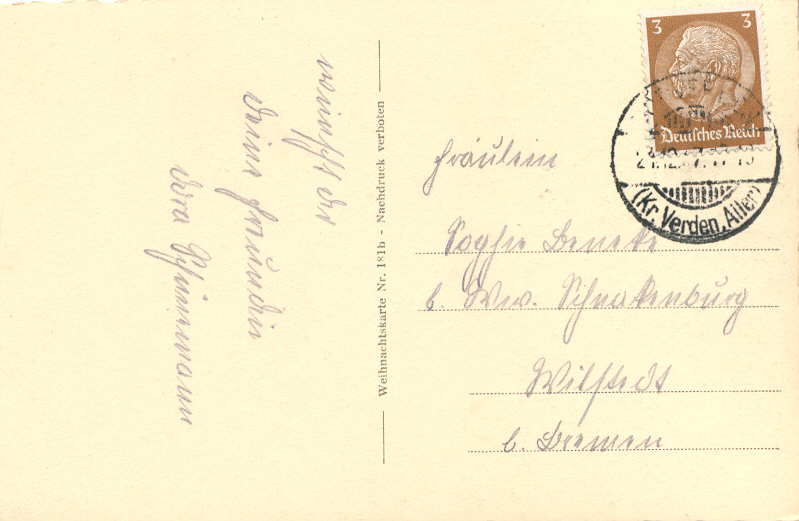 wünscht dir
deine Freundin
Dora
Weihnachtskarte Nr. 181b - Nachdruck verboten
3 3
Deutsches Reich
(Kr. Verden, Aller)
Fräulein
Sophie Beneke
b. Ww. Schnakenburg
Wilstedt
b. Bremen